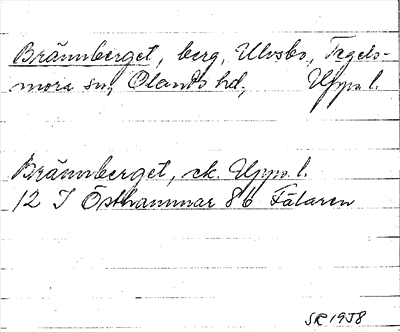 Brännberget, berg, Ulvsbo, Tegels-
mora sn, Olands hd, Upps. l.
Brännberget, ek. Upps. l.
12 I Östhammar 8b Fälaren
SR 1958